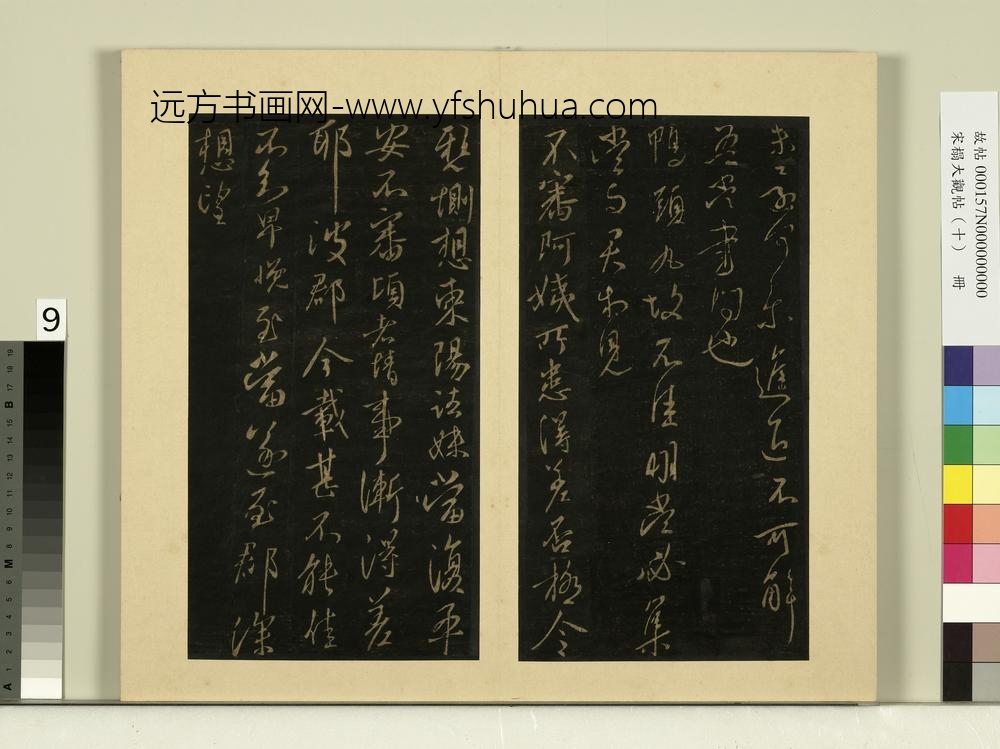 未何尔進退不可解
吾當書問也
鴨頭丸故不佳明當必集
當與君相見
不審阿姨所患得差否極令
懸惻想東陽諸妹當復平
安不審頃者情事漸得差
耶彼郡今載甚不能佳
不知早晚至當遂至郡深
想望
远方书画网-www.yfshuhua.com
故帖 000157N000000000
宋榻大觀帖（十） 冊
9
A 1 2 3 4 5 6 M 8 9 10 11 12 13 14 15 B 17 18 19